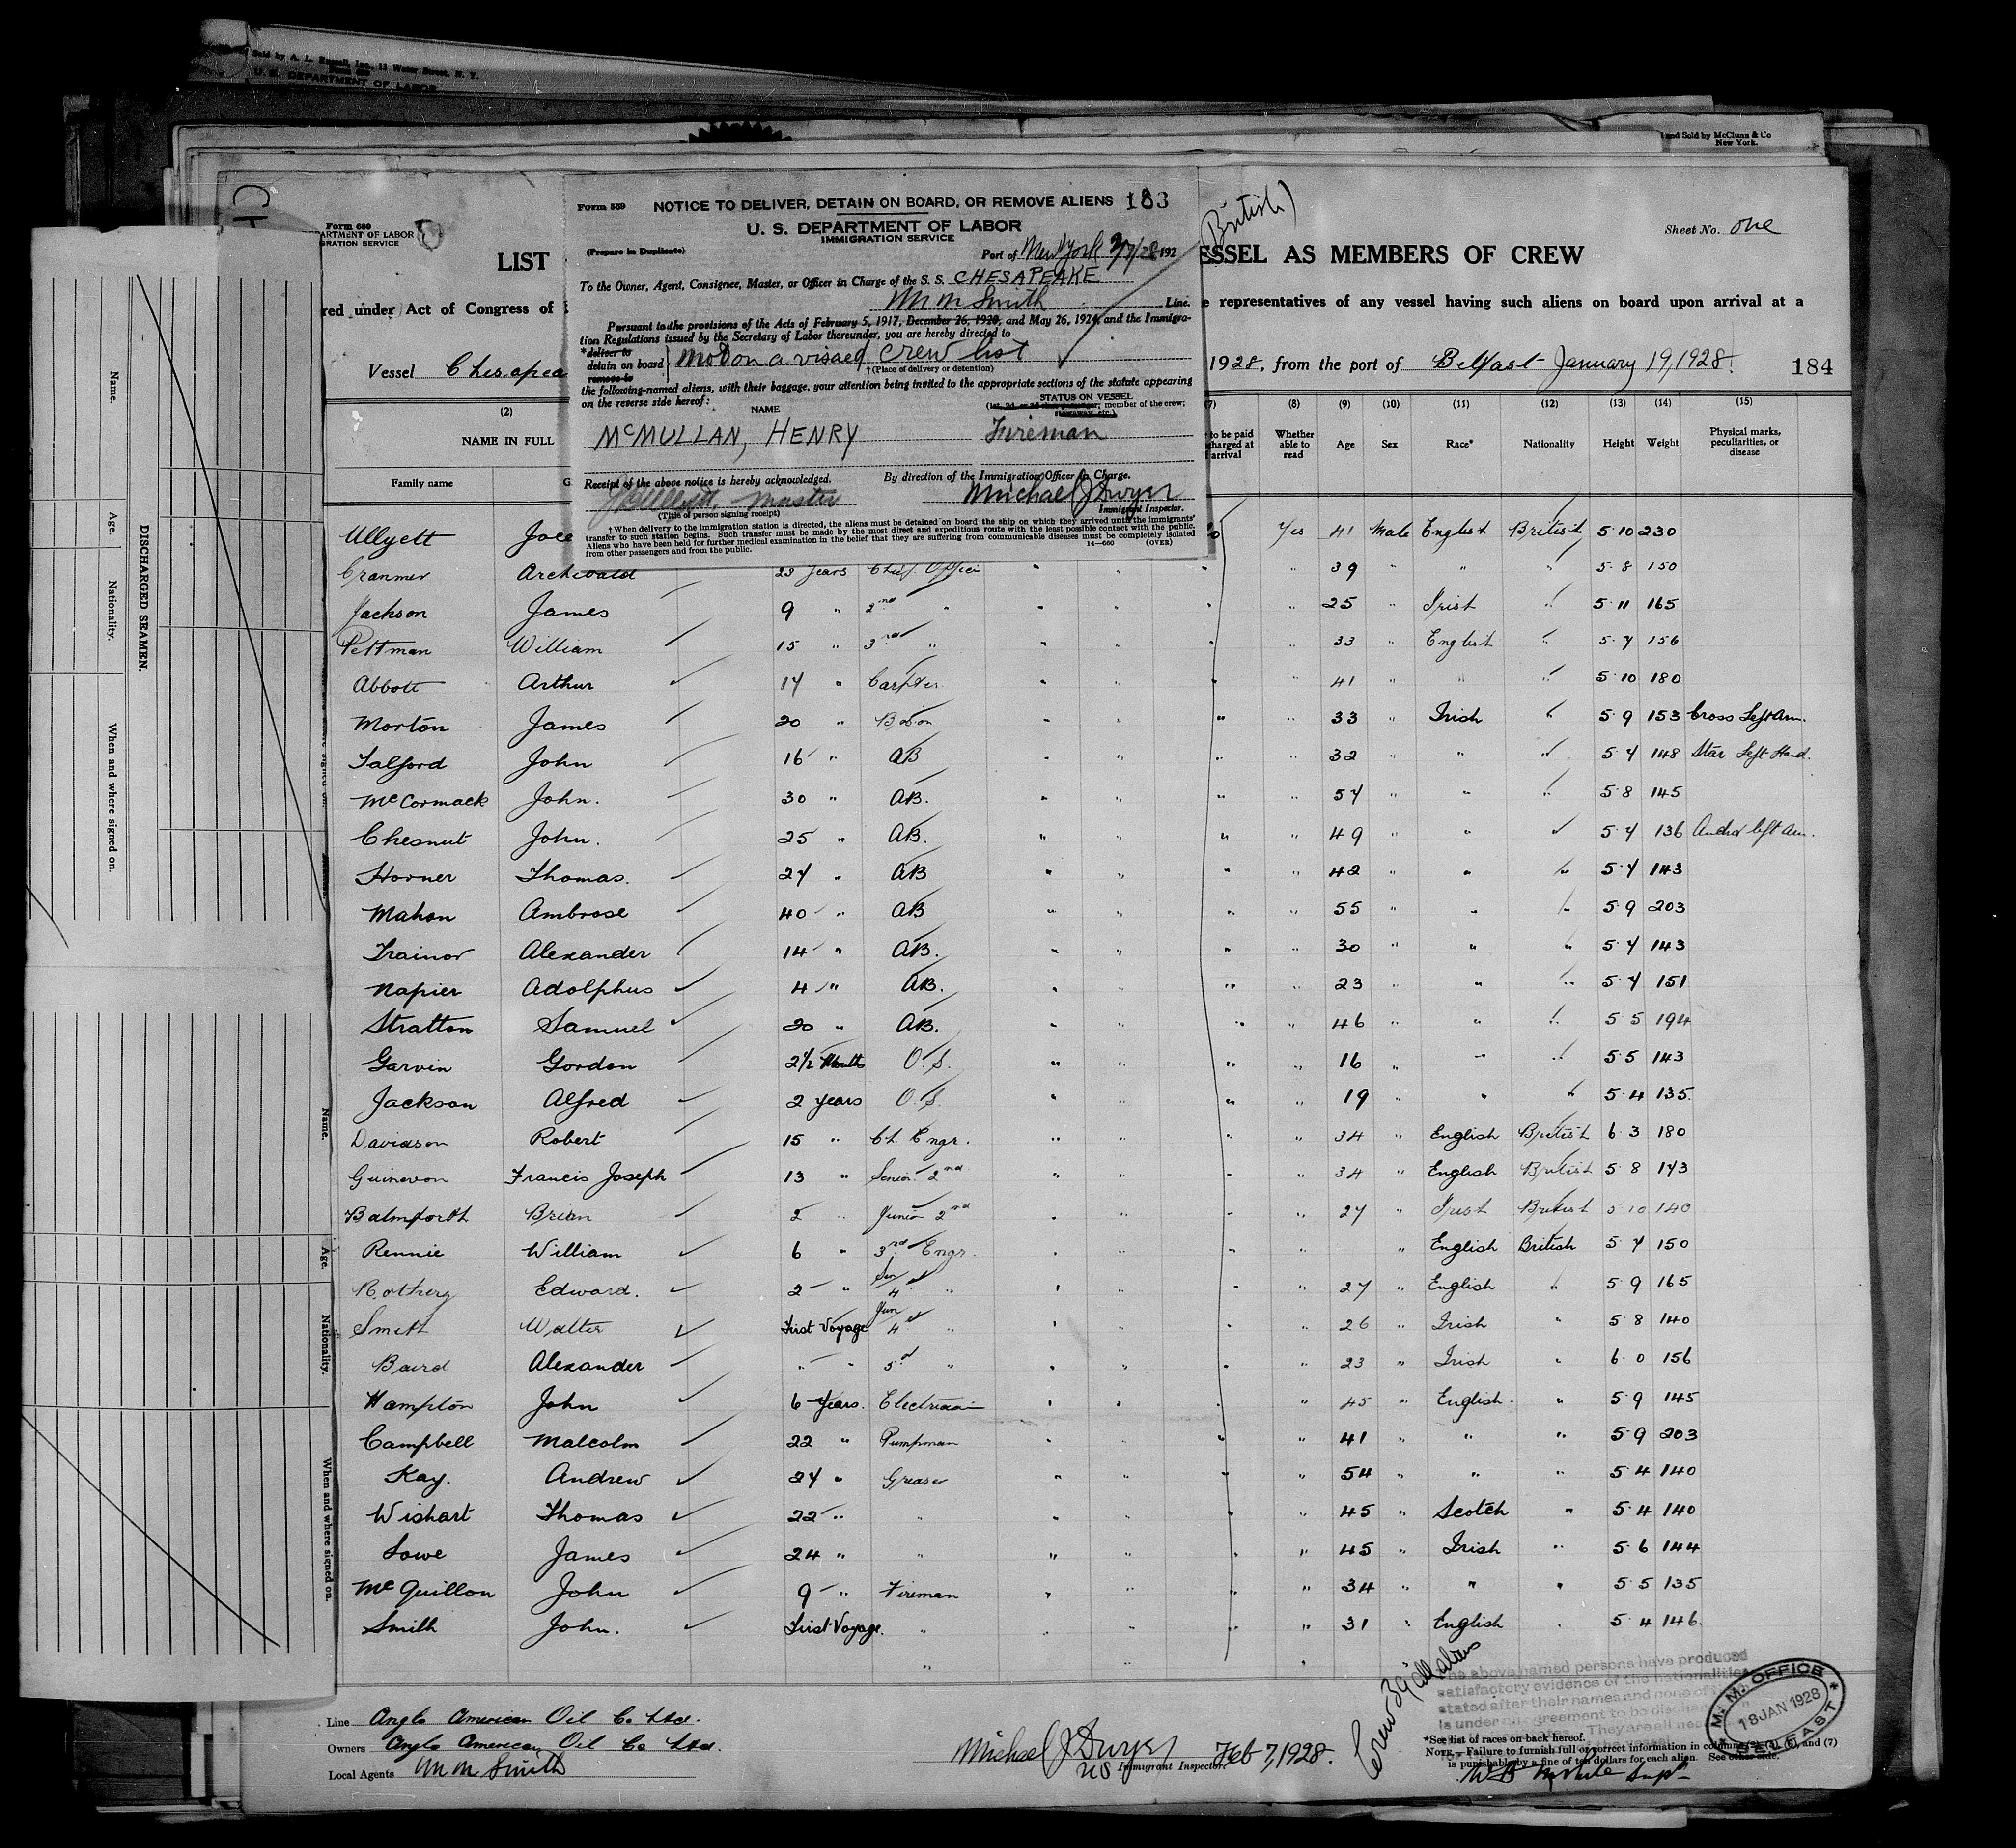 Sold by A. L. Russell, Inc., 12 Water Street, N. Y.
U. S. DEPARTMENT OF LABOR
and Sold by McClunn & Co
New York.
Form 680
DEPARTMENT OF LABOR
IMMIGRATION SERVICE
LIST
red under Act of Congress of
Vessel Chesapea
Form 559 NOTICE TO DELIVER, DETAIN ON BOARD, OR REMOVE ALIENS 183
U. S. DEPARTMENT OF LABOR
IMMIGRATION SERVICE
(Prepare in Duplicate) Port of New York 2/7/28 192
To the Owner, Agent, Consignee, Master, or Officer in Charge of the S. S. CHESAPEAKE
M M Smith Line.
Pursuant to the provisions of the Acts of February 5, 1917, December 26, 1920, and May 26, 1924, and the Immigra-
tion Regulations issued by the Secretary of Labor thereunder, you are hereby directed to
*deliver to
detain on board
remove to
Not on a visaed crew list
†(Place of delivery or detention)
the following-named aliens, with their baggage, your attention being invited to the appropriate sections of the statute appearing
on the reverse side hereof:
NAME
STATUS ON VESSEL
(1st, 2d, or 3d class passenger; member of the crew;
stowaway, etc.)
McMULLAN, HENRY Fireman
Receipt of the above notice is hereby acknowledged. By direction of the Immigration Officer in Charge.
Master Michael J Dwyer
(Title of person signing receipt) Immigrant Inspector.
†When delivery to the immigration station is directed, the aliens must be detained on board the ship on which they arrived until the immigrants'
transfer to such station begins. Such transfer must be made by the most direct and expeditious route with the least possible contact with the public.
Aliens who have been held for further medical examination in the belief that they are suffering from communicable diseases must be completely isolated
from other passengers and from the public. 14—660 (OVER)
British)
Sheet No. One
ESSEL AS MEMBERS OF CREW
e representatives of any vessel having such aliens on board upon arrival at a
1928, from the port of Belfast January 19, 1928. 184
(2) (7) (8) (9) (10) (11) (12) (13) (14) (15)
NAME IN FULL to be paid charged at arrival Whether able to read Age Sex Race* Nationality Height Weight Physical marks, peculiarities, or disease
Family name G
Ullyett Joce Yes 41 Male English British 5 10 230
Cranmer Archibald 23 Years Chief Officer " " " " 39 " " " 5 8 150
Jackson James 9 " 2nd " " " " " 25 " Irish " 5 11 165
Pettman William 15 " 3rd " " " " " 33 " English " 5 7 156
Abbott Arthur 14 " Carpter " " " " 41 " " " 5 10 180
Morton James 20 " Bosn " " " " 33 " Irish " 5 9 153 Cross Left Arm.
Salford John 16 " AB " " " " 32 " " " 5 7 148 Star Left Hand.
McCormack John. 30 " AB. " " " " 57 " " " 5 8 145
Chesnut John. 25 " AB. " " " " 49 " " " 5 7 136 Anchor left arm.
Horner Thomas. 27 " AB " " " " 42 " " " 5 7 143
Mahon Ambrose 40 " AB " " " " 55 " " " 5 9 203
Trainor Alexander 14 " AB. " " " " 30 " " " 5 7 143
Napier Adolphus 4 " AB. " " " " 23 " " " 5 7 151
Stratton Samuel 20 " AB. " " " " 46 " " " 5 5 194
Garvin Gordon 2 1/2 Months O.S. " " " " 16 " " " 5 5 143
Jackson Alfred 2 years O.S. " " " " 19 " " " 5 4 135.
Davidson Robert 15 " Ch. Engr. " " " " 34 " English British 6 3 180
Guinevon Francis Joseph 13 " Senior 2nd " " " " 34 " English British 5 8 143
Balmforth Brian 2 " Junior 2nd " " " " 27 " Irish British 5 10 140
Rennie William 6 " 3rd Engr. " " " " " English British 5 7 150
Rothery Edward. 2 " Sen 4th " " " " " 27 " English " 5 9 165
Smith Walter First Voyage Jun 4th " " " " " 26 " Irish " 5 8 140
Baird Alexander " " 5th " " " " " 23 " Irish " 6 0 156
Hampton John 6 Years. Electrician " " " " 45 " English. " 5 9 145
Campbell Malcolm 22 " Pumpman " " " " 41 " " " 5 9 203
Kay. Andrew 27 " Greaser " " " " 54 " " " 5 4 140
Wishart Thomas 22 " " " " " " 45 " Scotch " 5 4 140
Lowe James 24 " " " " " " 45 " Irish " 5 6 144
McQuillon John 9 " Fireman " " " " 34 " " " 5 5 135
Smith John. First Voyage. " " " " " 31 " English " 5 4 146.
Line Anglo American Oil Co Ltd.
Owners Anglo American Oil Co Ltd.
Local Agents M M Smith
Michael J Dwyer Feb 7, 1928.
US Immigrant Inspector.
Crew 39 all aliens
The above named persons have produced
satisfactory evidence of the nationalities
stated after their names and none of
is under agreement to be discharged
They are all
M. M. OFFICE
18 JAN 1928
BELFAST
*See list of races on back hereof.
NOTE.—Failure to furnish full or correct information in columns (7)
is punishable by a fine of ten dollars for each alien. See other side.
Supt
DISCHARGED SEAMEN.
Name.
Age.
Nationality.
When and where signed on.
Name.
Age.
Nationality.
When and where signed on.